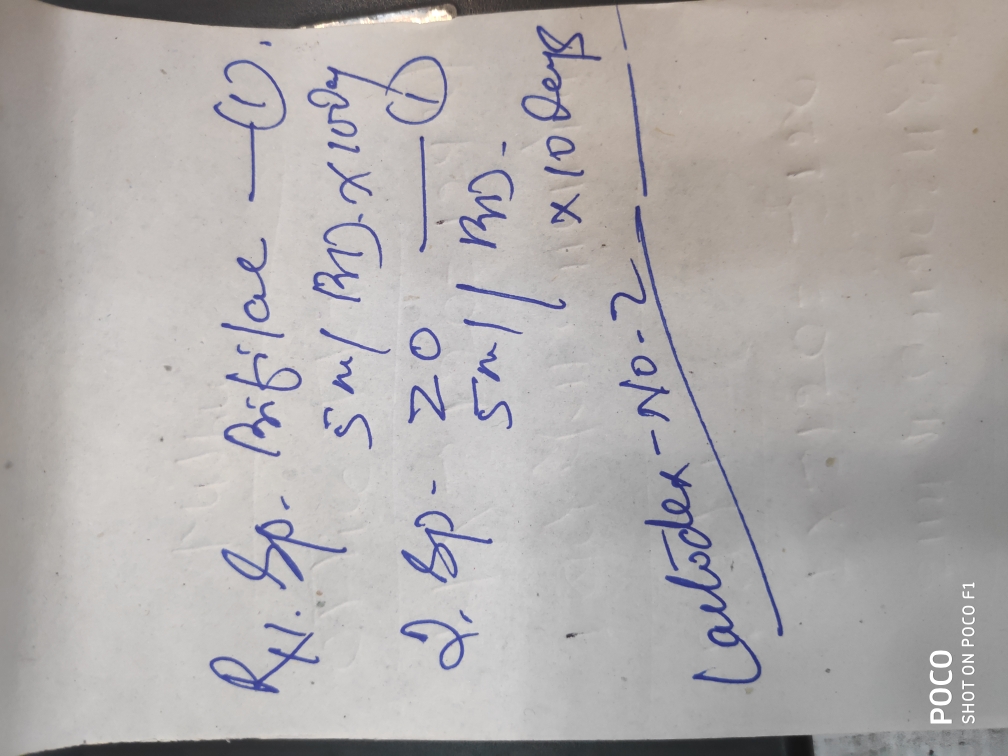 Rx 1. Sp. Bifilac — (1).
5 ml BD x 10 Day
2. Sp - Z0 — (1)
5 ml / BD -
x 10 Days
Lactodex - No - 2
POCO
SHOT ON POCO F1